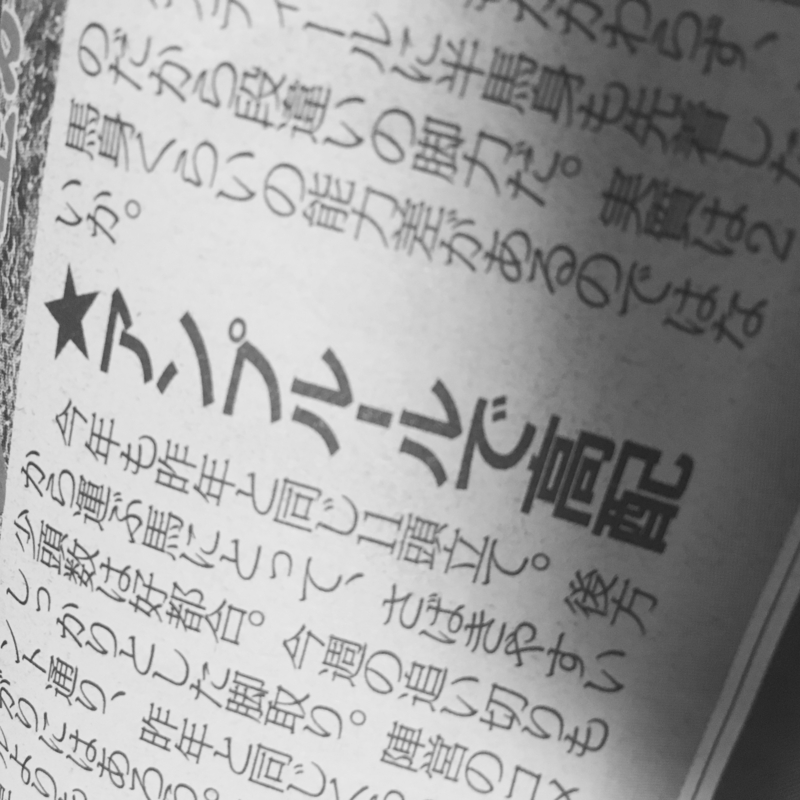 たがわらず、
ティールに半馬身も先着した
のだから段違いの脚力だ。実質は2
馬身くらいの能力差があるのではな
いか。
★アンプルールで高配
今年も昨年と同じ11頭立て。後方
から運ぶ馬にとって、さばきやすい
少頭数は好都合。今週の追い切りも
しっかりとした脚取り。陣営のコメ
ント通り、昨年と同じくら
がりにはあろう。
よりも